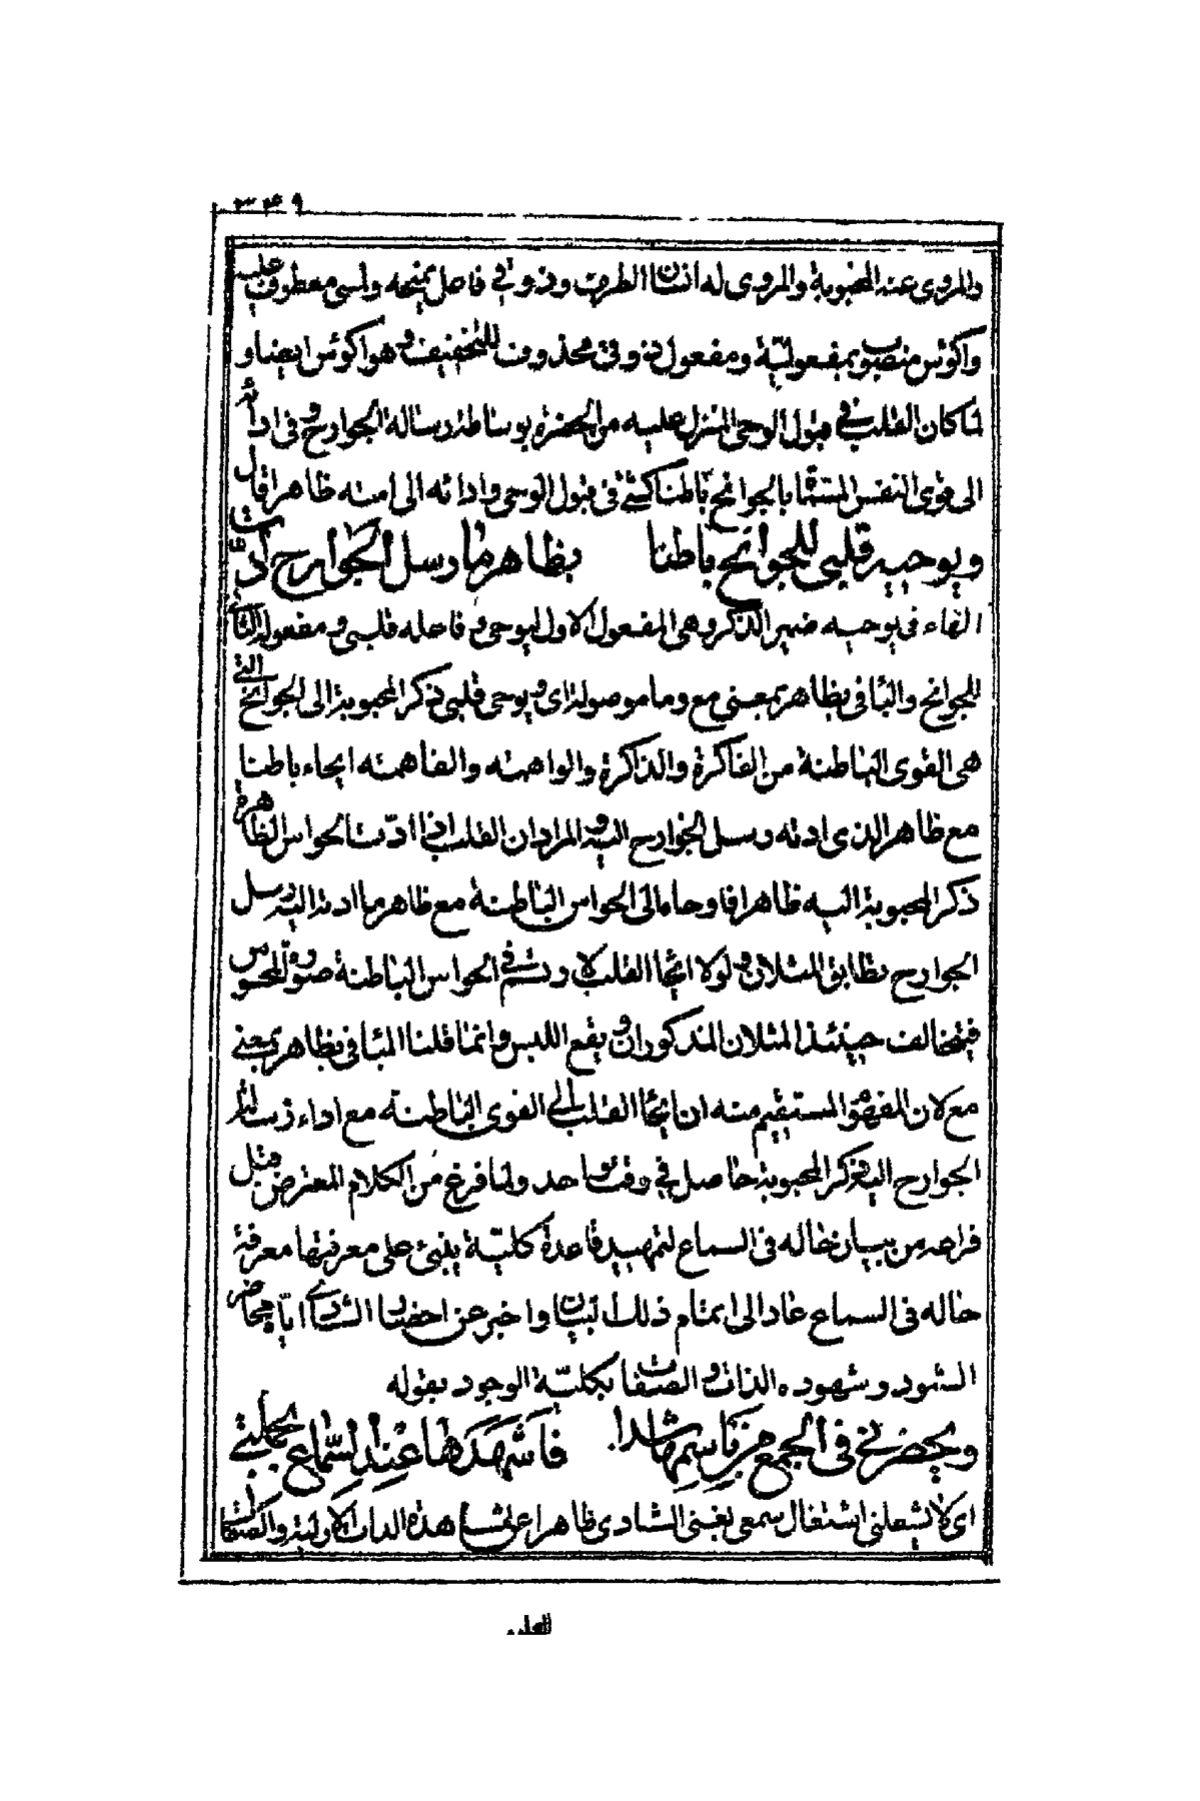 ٣٤٩
والمروى عنه المحبوبة والمروى له انسان الطرف وذوقى فاعل يمنحه ولمسى معطوف عليه
واكؤس منصوب بمفعوليّة ومفعول ذوقى محذوف للتخفيف وهو اكؤس ايضا و
لما كان القلب فى قبول الوحى المنزل عليه من الحضرة بوساطة رسالة الجوارح وفى ادائه
الى قوى النفس المسمّاة بالجوانح باطنا كنبى فى قبول الوحى وادائه الى امته ظاهرا قال
ويوحيه قلبى للجوانح باطنا بظاهر ما رسل الجوارح ادّت
الهاء فى يوحيه ضمير الذكر وهى المفعول الاول ليوحى وفاعله قلبى ومفعوله الثانى
للجوانح والباء فى بظاهر بمعنى مع وما موصولة اى ويوحى قلبى ذكر المحبوبة الى الجوانح التى
هى القوى الباطنة من الفاكرة والذاكرة والواهمة والفاهمة ايحاء باطنا
مع ظاهر الذى ادته رسل الجوارح اليه والمراد ان القلب اذا ادّت الحواس الظاهرة
ذكر المحبوبة اليه ظاهرا فاوحاه الى الحواس الباطنة مع ظاهر ما ادته اليه رسل
الجوارح تطابق المثلان ولولا ايحاء القلب لا رتسم فى الحواس الباطنة صورة المحسوس
فيتخالف حينئذ المثلان المذكوران ويقع اللبس وانما قلنا الباء فى بظاهر بمعنى
مع لان المفهوم المستقيم منه ان ايحاء القلب الى القوى الباطنة مع اداء رسالة
الجوارح اليه ذكر المحبوبة حاصل فى وقت واحد ولما فرغ من الكلام المعترض قبل
فراغه من بيان حاله فى السماع لتمهيد قاعدة كليّة يبنى على معرفتها معرفة
حاله فى السماع عاد الى اتمام ذلك البيان واخبر عن احضار الشادى ايّاه محاضر
الشهود وشهوده الذات والصفات بكليّة الوجود بقوله
ويحضرنى فى الجمع من باسمها شدا فاشهدها عند السّماع بجملتى
اى لا يشغلنى اشتغال سمعى بغنى الشادى ظاهرا عن مشاهدة الذات الازلية والصفات
العلية